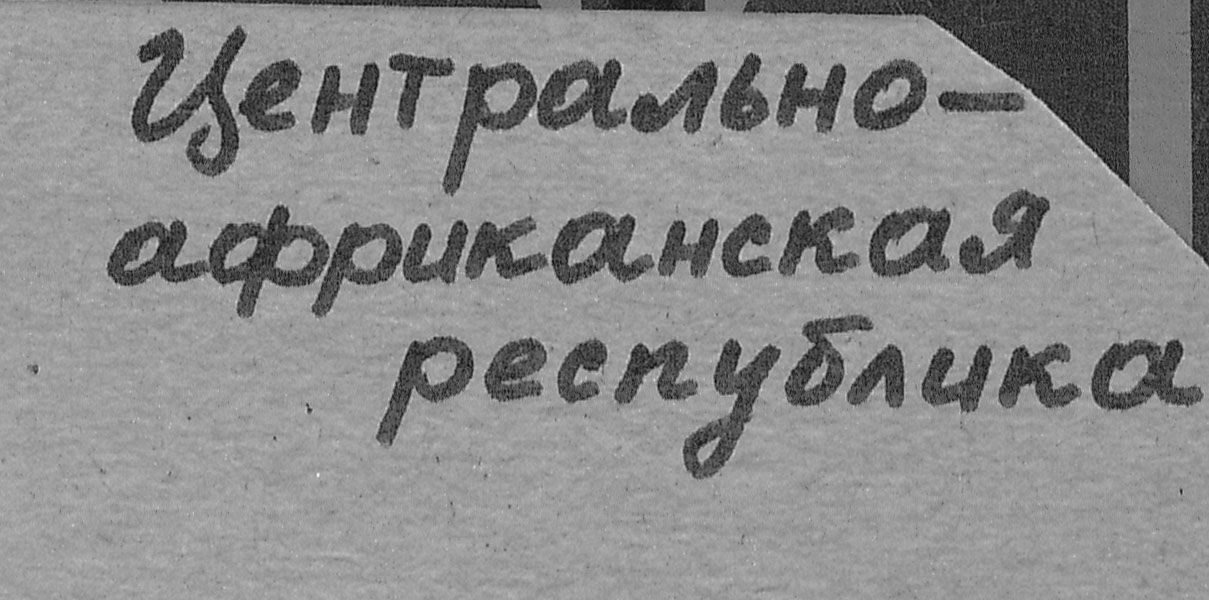 Центрально-
африканская
республика